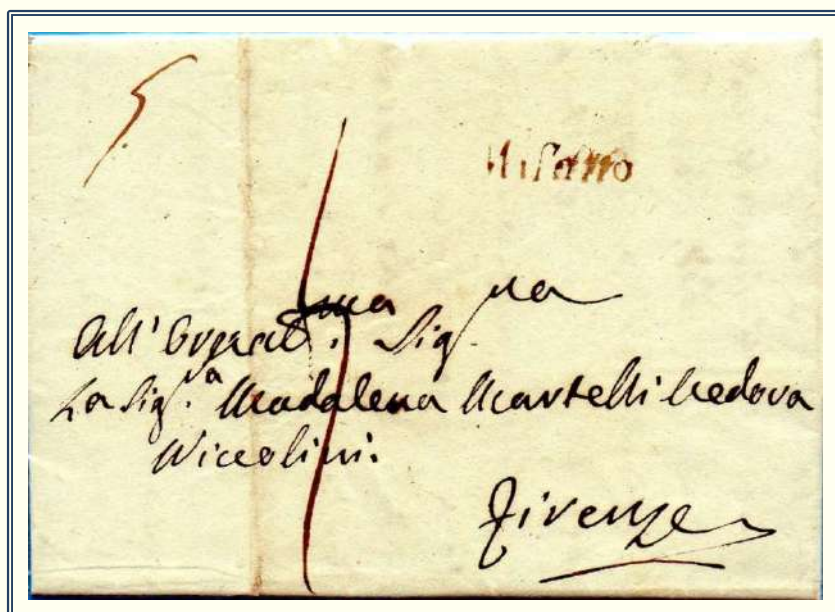 5
Milano
All' Ornat.ma Sig.ra
La Sig.ra Madalena Martelli Vedova
Niccolini.
Firenze